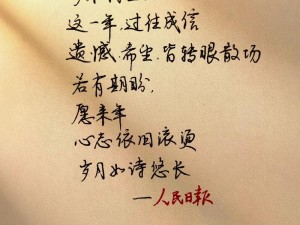 这一年,过往成信
遗憾、希尘、皆转眼散场
若有期盼,
愿来年
心志依旧滚烫
岁月如诗悠长
—人民日报